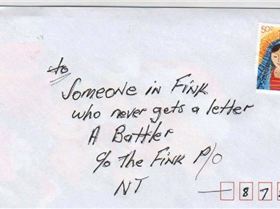 to
Someone in Fink
who never gets a letter
A Battler
c/o The Fink P/O
NT
87
50c